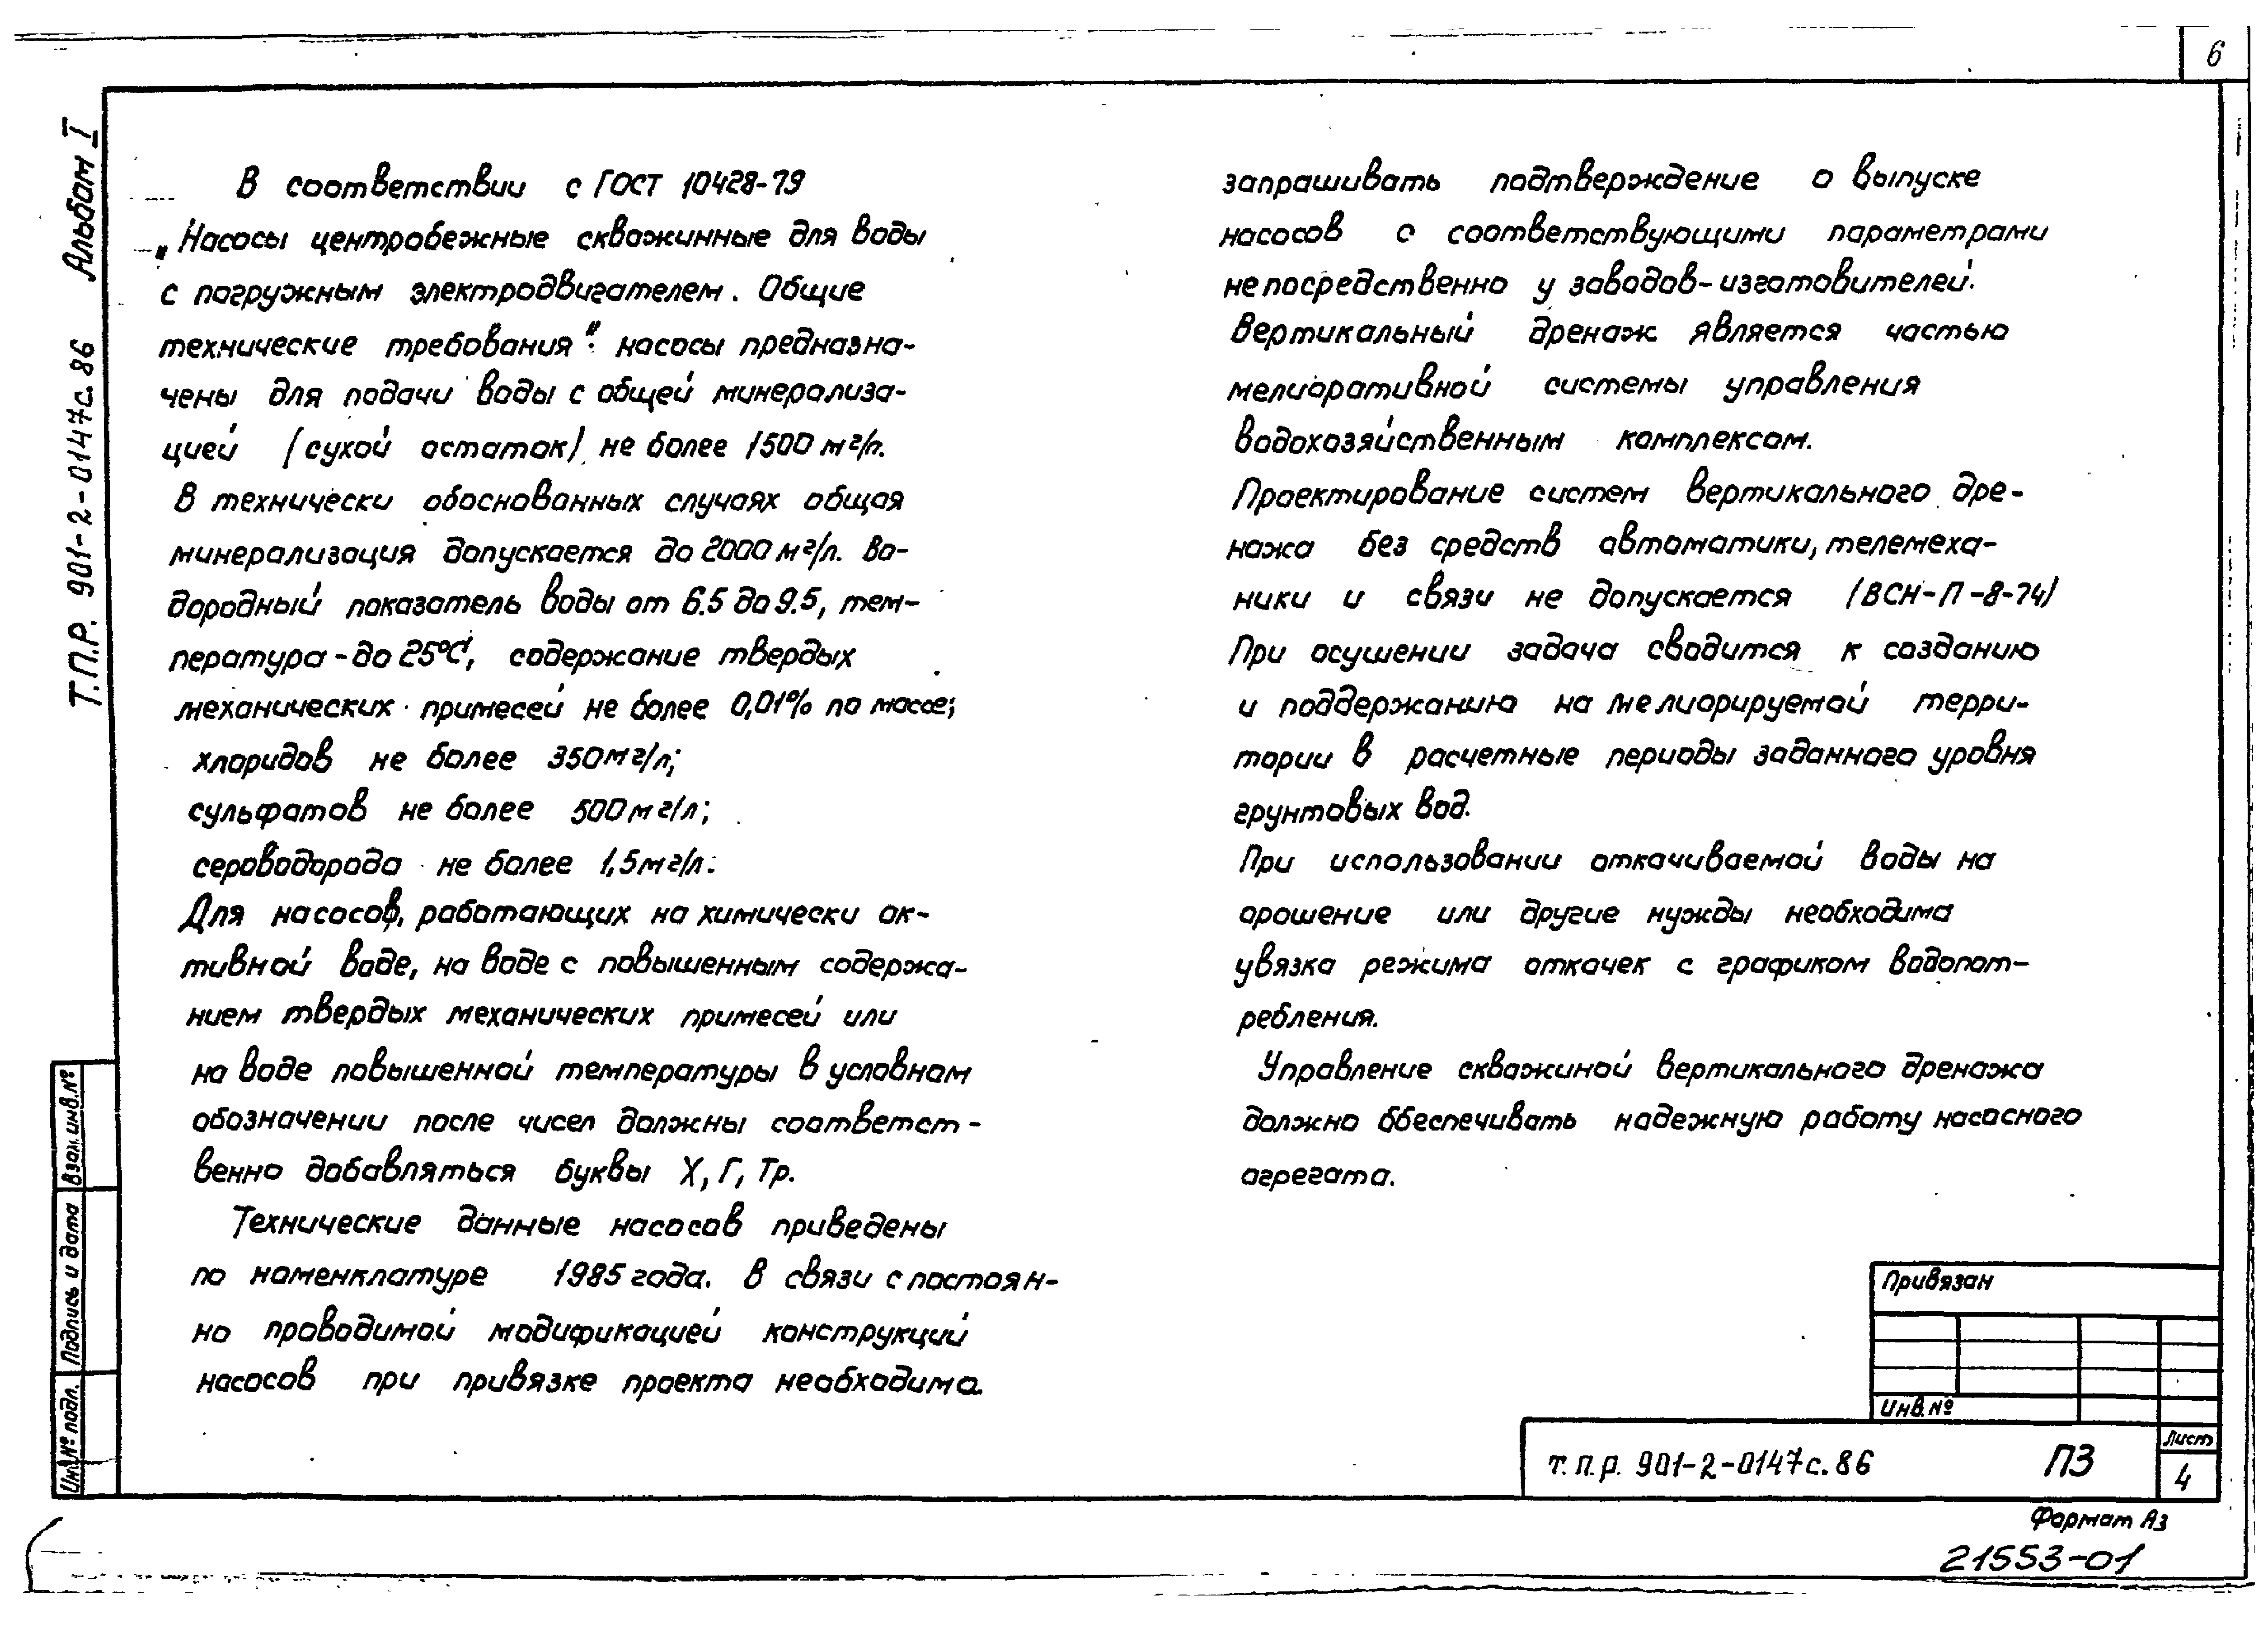 6
Альбом I
Т.П.Р. 901-2-0147с.86
В соответствии с ГОСТ 10428-79
„Насосы центробежные скважинные для воды
с погружным электродвигателем. Общие
технические требования". насосы предназна-
чены для подачи воды с общей минерализа-
цией (сухой остаток) не более 1500 мг/л.
В технически обоснованных случаях общая
минерализация допускается до 2000 мг/л. Во-
дородный показатель воды от 6.5 до 9.5, тем-
пература - до 25°С, содержание твердых
механических примесей не более 0,01% по массе;
хлоридов не более 350мг/л;
сульфатов не более 500мг/л;
сероводорода не более 1,5мг/л.
Для насосов, работающих на химически ак-
тивной воде, на воде с повышенным содержа-
нием твердых механических примесей или
на воде повышенной температуры в условном
обозначении после чисел должны соответст-
венно добавляться буквы Х, Г, Тр.
Технические данные насосов приведены
по номенклатуре 1985 года. В связи с постоян-
но проводимой модификацией конструкций
насосов при привязке проекта необходимо
запрашивать подтверждение о выпуске
насосов с соответствующими параметрами
непосредственно у заводов-изготовителей.
Вертикальный дренаж является частью
мелиоративной системы управления
водохозяйственным комплексом.
Проектирование систем вертикального дре-
нажа без средств автоматики, телемеха-
ники и связи не допускается (ВСН-П-8-74)
При осушении задача сводится к созданию
и поддержанию на мелиорируемой терри-
тории в расчетные периоды заданного уровня
грунтовых вод.
При использовании откачиваемой воды на
орошение или другие нужды необходима
увязка режима откачек с графиком водопот-
ребления.
Управление скважиной вертикального дренажа
должно обеспечивать надежную работу насосного
агрегата.
Взам. инв.№
Подпись и дата
Инв.№ подл.
Привязан
Инв.№
т.п.р. 901-2-0147с.86 ПЗ
Лист
4
Формат А3
21553-01